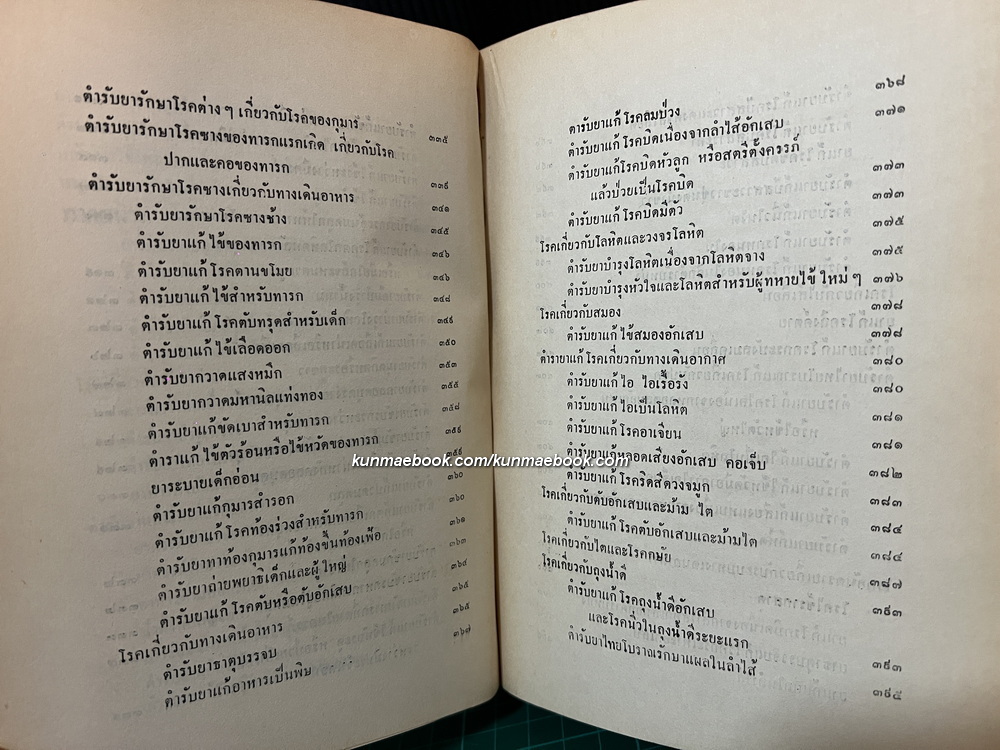 ตำรับยารักษาโรคต่าง ๆ เกี่ยวกับโรคของกุมาร ๓๓๕
ตำรับยารักษาโรคซางของทารกแรกเกิด เกี่ยวกับโรค
ปากและคอของทารก ๓๓๙
ตำรับยารักษาโรคซางเกี่ยวกับทางเดินอาหาร ๓๔๑
ตำรับยารักษาโรคซางช้าง ๓๔๕
ตำรับยาแก้ไข้ของทารก ๓๔๖
ตำรับยาแก้โรคตานขโมย ๓๔๖
ตำรับยาแก้ไข้สำหรับทารก ๓๔๘
ตำรับยาแก้โรคตับทรุดสำหรับเด็ก ๓๔๙
ตำรับยาแก้ไข้เลือดออก ๓๕๐
ตำรับยากวาดแสงหมึก ๓๕๓
ตำรับยากวาดมหานิลแท่งทอง ๓๕๕
ตำรับยาแก้ขัดเบาสำหรับทารก ๓๕๘
ตำราแก้ไข้ตัวร้อนหรือไข้หวัดของทารก ๓๕๙
ยาระบายเด็กอ่อน ๓๕๙
ตำรับยาแก้กุมารสำรอก ๓๖๐
ตำรับยาแก้โรคท้องร่วงสำหรับทารก ๓๖๐
ตำรับยาทาท้องกุมารแก้ท้องขึ้นท้องเฟ้อ ๓๖๑
ตำรับยาถ่ายพยาธิเด็กและผู้ใหญ่ ๓๖๓
ตำรับยาแก้โรคตับหรือตับอักเสบ ๓๖๔
โรคเกี่ยวกับทางเดินอาหาร ๓๖๕
ตำรับยาธาตุบรรจบ ๓๖๕
ตำรับยาแก้อาหารเป็นพิษ ๓๖๗
ตำรับยาแก้โรคลมป่วง ๓๖๘
ตำรับยาแก้โรคบิดเนื่องจากลำไส้อักเสบ ๓๗๑
ตำรับยาแก้โรคบิดหัวลูก หรือสตรีตั้งครรภ์
แล้วป่วยเป็นโรคบิด ๓๗๓
ตำรับยาแก้โรคบิดมีตัว ๓๗๓
โรคเกี่ยวกับโลหิตและวงจรโลหิต ๓๗๕
ตำรับยาบำรุงโลหิตเนื่องจากโลหิตจาง ๓๗๕
ตำรับยาบำรุงหัวใจและโลหิตสำหรับผู้ที่หายไข้ใหม่ ๆ ๓๗๖
โรคเกี่ยวกับสมอง ๓๗๘
ตำรับยาแก้ไข้สมองอักเสบ ๓๗๘
ตำรายาแก้โรคเกี่ยวกับทางเดินอากาศ ๓๘๐
ตำรับยาแก้ไอ ไอเรื้อรัง ๓๘๐
ตำรับยาแก้ไอเป็นโลหิต ๓๘๑
ตำรับยาแก้โรคอาเจียน ๓๘๑
ตำรับยาแก้หลอดเสียงอักเสบ คอเจ็บ ๓๘๒
ตำรับยาแก้โรคริดสีดวงจมูก ๓๘๓
โรคเกี่ยวกับตับอักเสบและม้าม ไต ๓๘๔
ตำรับยาแก้โรคตับอักเสบและม้ามไต ๓๘๔
โรคเกี่ยวกับไตและโรคกษัย ๓๘๗
โรคเกี่ยวกับถุงน้ำดี ๓๙๓
ตำรับยาแก้โรคถุงน้ำดีอักเสบ
และโรคนิ่วในถุงน้ำดีระยะแรก ๓๙๓
ตำรับยาไทยโบราณรักษาแผลในลำไส้ ๓๙๕
kunmaebook.com/kunmaebook.com